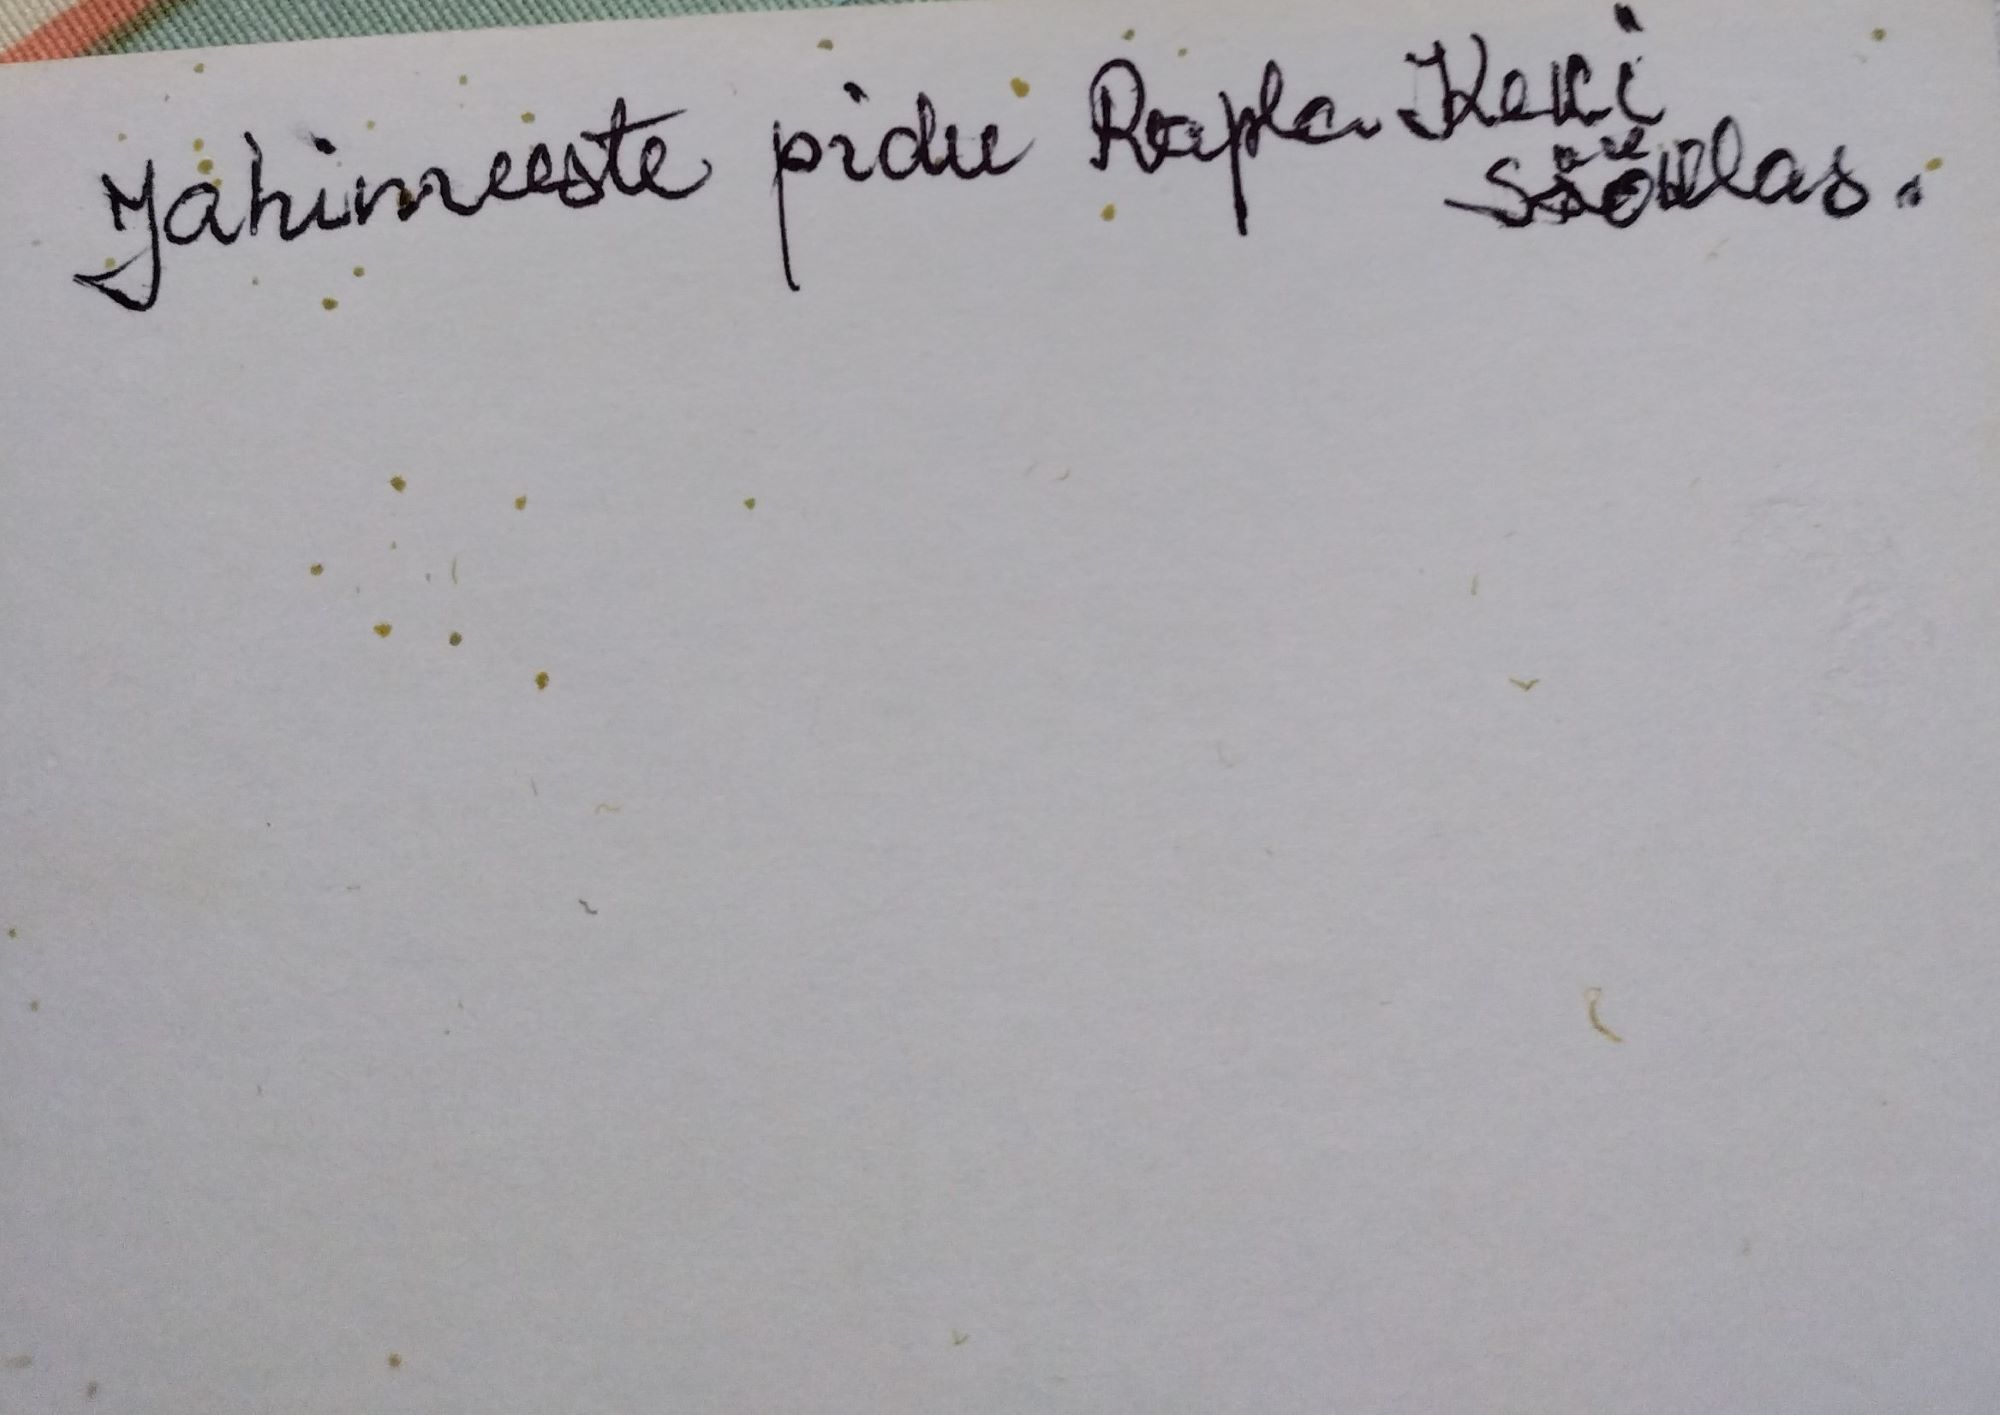 Jahimeeste pidu Rapla Keki
sööklas.